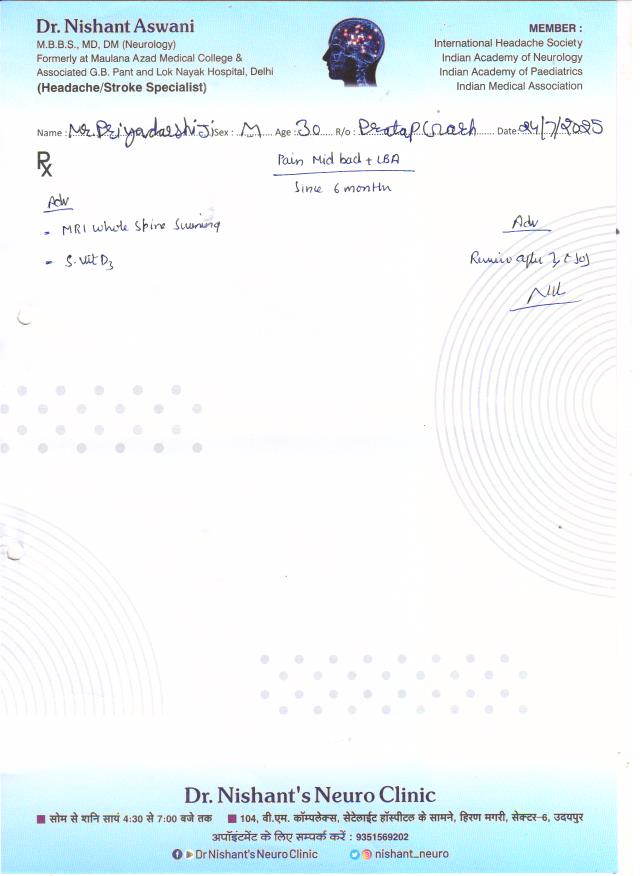 Dr. Nishant Aswani
M.B.B.S., MD, DM (Neurology)
Formerly at Maulana Azad Medical College &
Associated G.B. Pant and Lok Nayak Hospital, Delhi
(Headache/Stroke Specialist)
MEMBER :
International Headache Society
Indian Academy of Neurology
Indian Academy of Paediatrics
Indian Medical Association
Name : Mr. Priyadarshi Ji Sex : M Age : 30 R/o : Pratap Garh Date 24/7/2025
Rx
Pain Mid back + LBA
Since 6 month
Adv
- MRI Whole Spine Screening
- S. Vit D3
Adv
Review after
डॉ Nishant's Neuro Clinic
सोम से शनि सायं 4:30 से 7:00 बजे तक 104, वी.एम. कॉम्पलेक्स, सेटेलाईट हॉस्पीटल के सामने, हिरण मगरी, सेक्टर-6, उदयपुर
अपॉइंटमेंट के लिए सम्पर्क करें : 9351569202
Dr Nishant's Neuro Clinic nishant_neuro